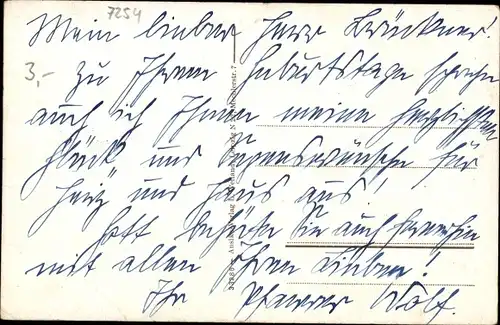 7254
3,-
Mein lieber Herr Brückner!
Zu Ihrem Geburtstage spreche
auch ich Ihnen meine herzlichsten
Glück und Segenswünsche für
Herz und Haus aus!
Gott behüte Sie auch fernerhin
mit allen Ihren Lieben!
Ihr Pfarrer Wolf.